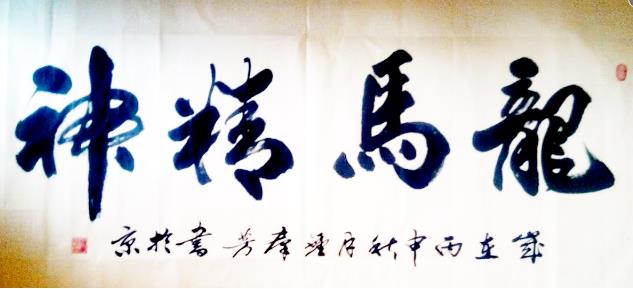 龍馬精神
歲在丙申秋月羣芳書於京